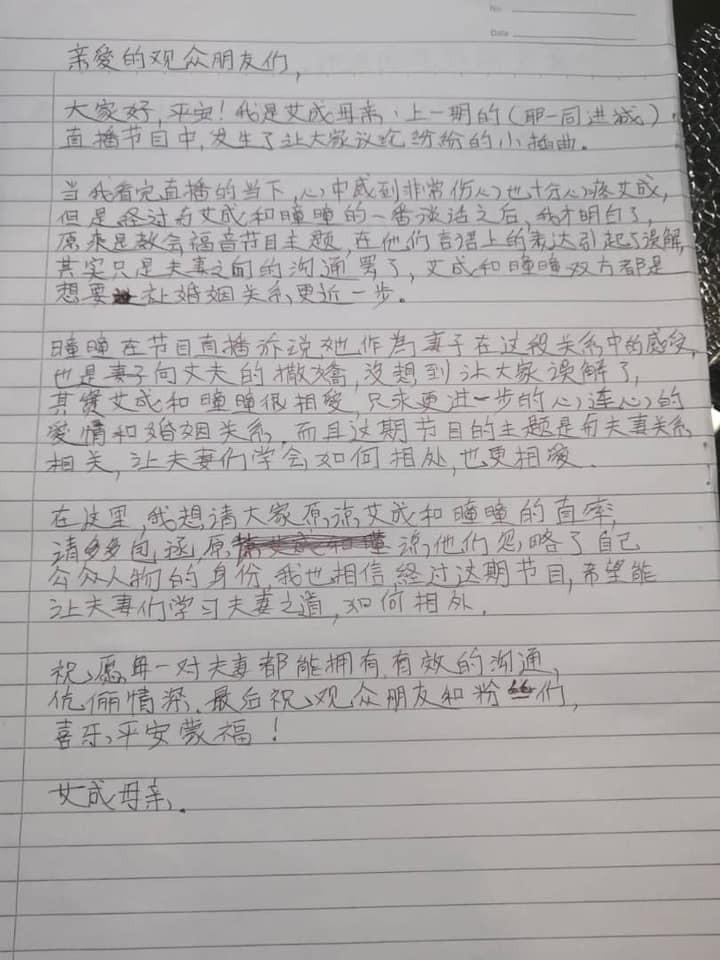 No.
Date
亲爱的观众朋友们,
大家好,平安!我是艾成母亲、上一期的(耶一同进城)
直播节目中,发生了让大家议论纷纷的小插曲。
当我看完直播的当下,心中感到非常伤心也十分心疼艾成,
但是经过与艾成和瞳瞳的一番谈话之后,我才明白了,
原来是教会福音节目主题,在他们言语上的表达引起了误解,
其实只是夫妻之间的沟通罢了,艾成和瞳瞳双方都是
想要让婚姻关系更近一步。
瞳瞳在节目直播诉说她作為妻子在这段关系中的感受,
也是妻子向丈夫的撒嬌,没想到让大家误解了,
其實艾成和瞳瞳很相愛,只求更进一步的心连心的
愛情和婚姻关系,而且这期节目的主题是与夫妻关系
相关,让夫妻们学会如何相处,也更相愛.
在这里,我想请大家原谅艾成和瞳瞳的直率,
请多多包拯,原谅他们忽略了自己
公众人物的身份,我也相信经过这期节目,希望能
让夫妻们学习夫妻之道,如何相处.
祝愿每一对夫妻都能拥有有效的沟通、
伉俪情深.最后祝观众朋友和粉丝们,
喜乐平安蒙福!
艾成母亲.